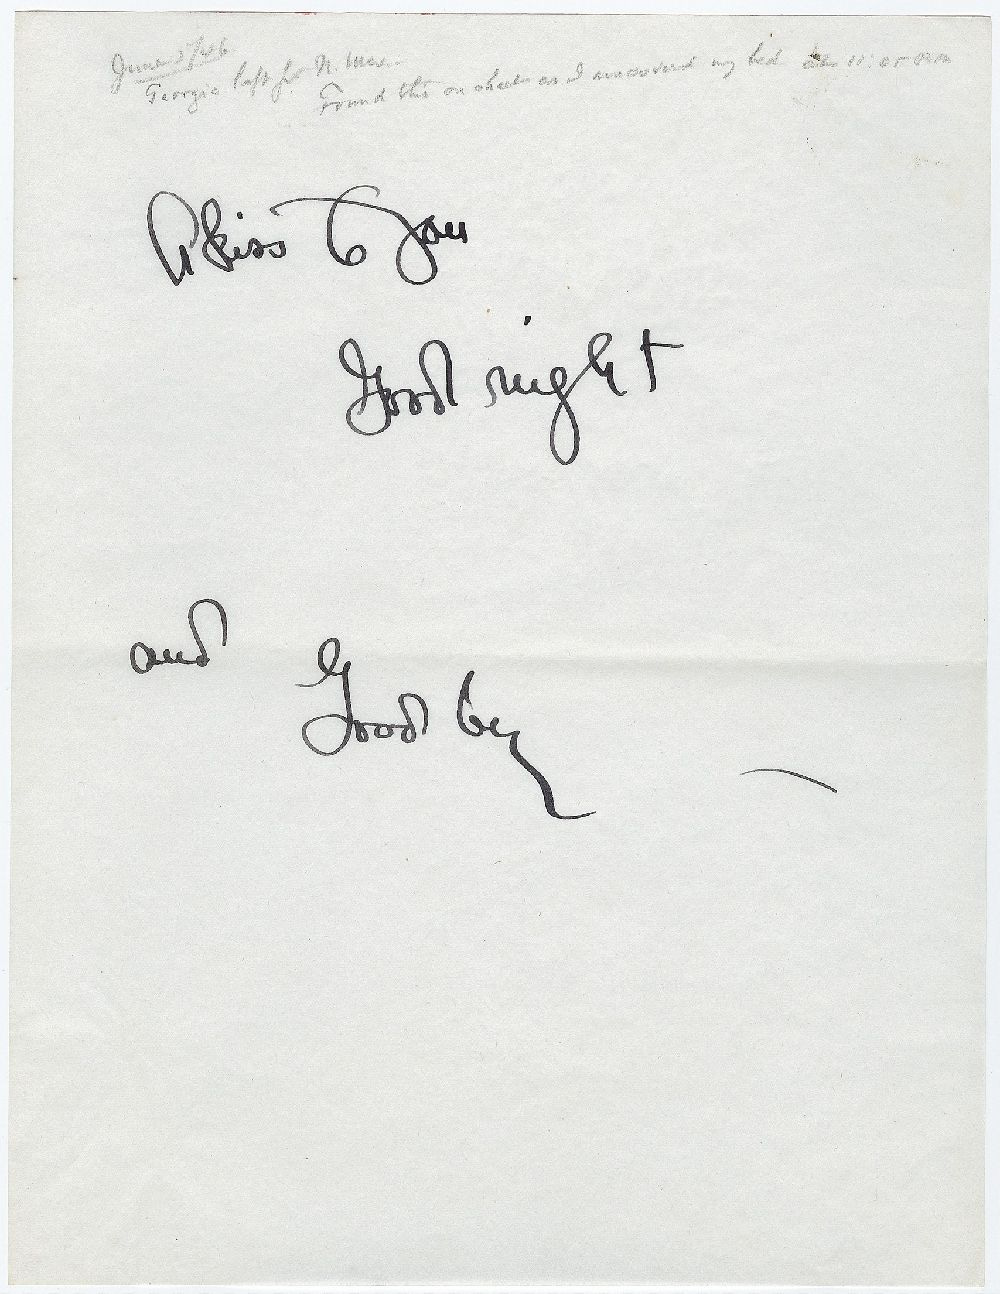 June 5/46
Georgia left for N. Mex.
Found this on sheet as I uncovered my bed 11:05 P.M.
A kiss to you
Good night
and
Good by